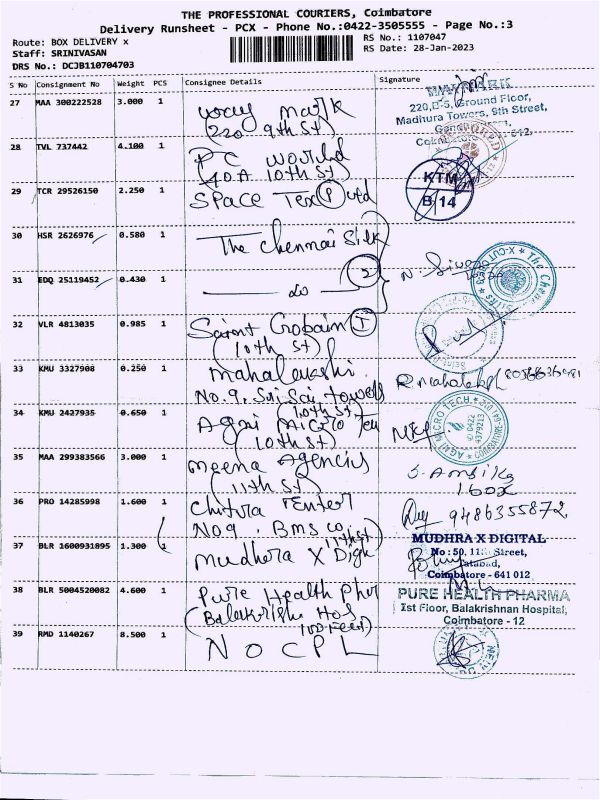 THE PROFESSIONAL COURIERS, Coimbatore
Delivery Runsheet - PCX - Phone No.:0422-3505555 - Page No.:3
Route: BOX DELIVERY x
RS No.: 1107047
Staff: SRINIVASAN
RS Date: 28-Jan-2023
DRS No.: DCJB110704703
S No Consignment No Weight PCS Consignee Details Signature
27 MAA 300222528 3.000 1 way mark
(220 9th St)
MARK
220,B-5, Ground Floor,
Madhura Towers, 9th Street,
28 TVL 737442 4.100 1 PC world
(40A 10th St)
29 TCR 29526150 2.250 1 Space Tex (P) Ltd
KTM
B/14
30 HSR 2626976 0.580 1 The Chennai Silk
31 EDQ 25119452 0.430 1 do 2
32 VLR 4813035 0.985 1 Saint Gobain (I)
(10th St)
33 KMU 3327908 0.250 1 mahalakshi
No. 9. Sri Sai towers
(10th St)
34 KMU 2427935 0.650 1 Agni Micro Tech
(10th St)
AGNI MICRO TECH
0422
4379213
35 MAA 299383566 3.000 1 meena Agencies
(11th St)
36 PRO 14285998 1.600 1 Chitra Enter
No.9. Bms co
11th St)
9486355872
37 BLR 1600931895 1.300 1 mudhera X Digi
MUDHRA X DIGITAL
No : 50, 11th Street,
Tatabad,
Coimbatore - 641 012
38 BLR 5004520082 4.600 1 Pure Health Phar
(Balakrish Hos
100 Feet)
PURE HEALTH PHARMA
1st Floor, Balakrishnan Hospital,
Coimbatore - 12
39 RMD 1140267 8.500 1 NOCPL